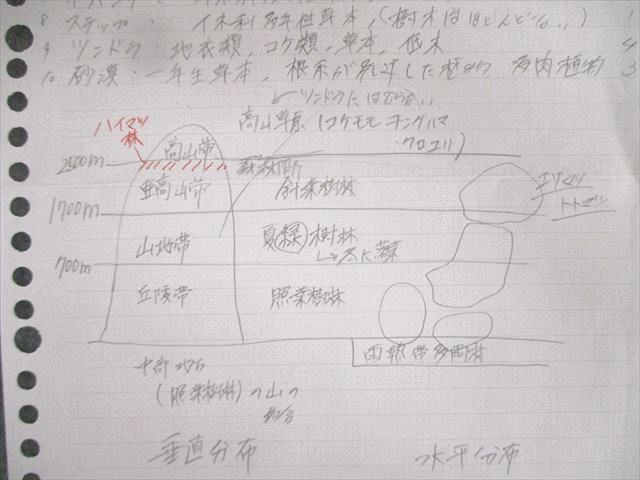 8 ステップ: イネ科多年性草本,(樹木はほとんどない)
9 ツンドラ: 地衣類, コケ類, 草本, 低木
10 砂漠: 一年生草本, 根系が発達した植物 多肉植物
←ツンドラに
ハイマツ林
高山草原 (コケモモ チングルマ
クロユリ)
高山帯
2500m 森林限界
亜高山帯 針葉樹林 エゾマツ
トドマツ
1700m
山地帯 夏緑樹林
700m
丘陵帯 照葉樹林
亜熱帯多雨林
中部地方
(照葉樹林)の山の
垂直分布 水平分布